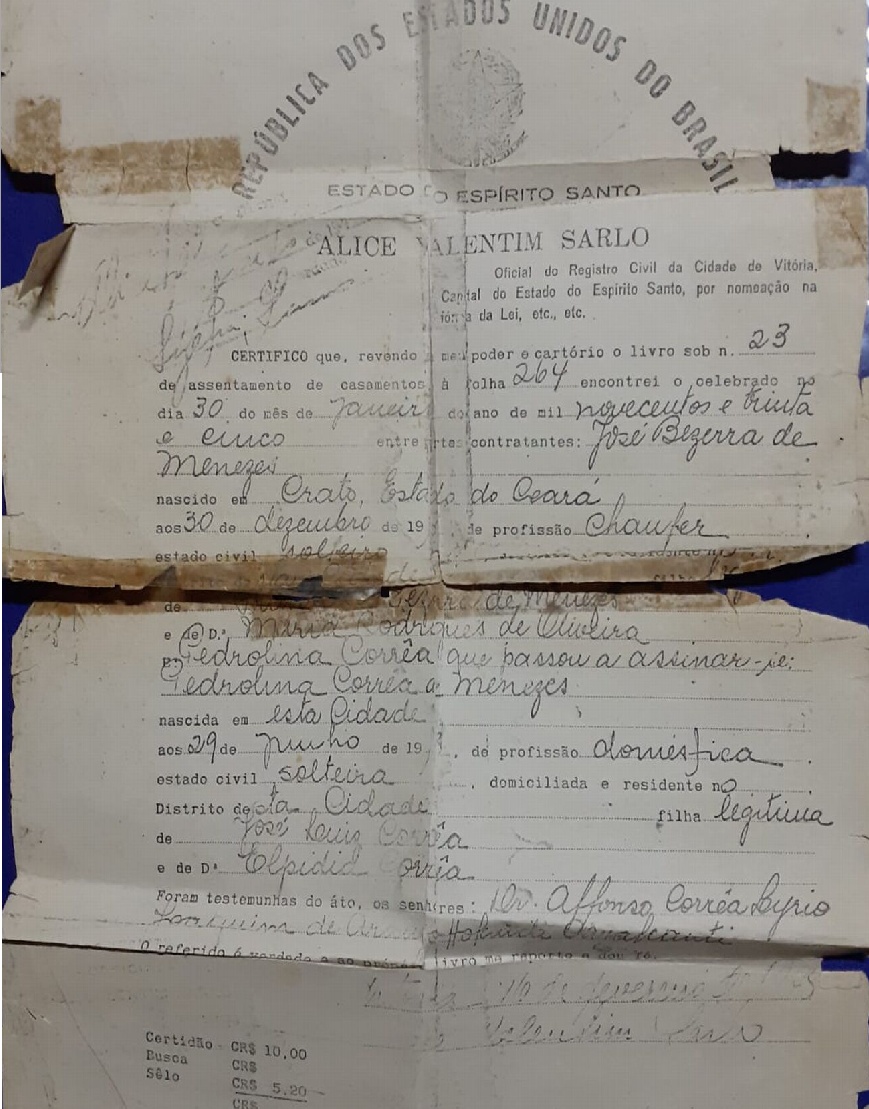 REPÚBLICA DOS ESTADOS UNIDOS DO BRASIL
ESTADO DO ESPÍRITO SANTO
ALICE VALENTIM SARLO
Oficial do Registro Civil da Cidade de Vitória,
Capital do Estado do Espírito Santo, por nomeação na
da Lei, etc., etc.
CERTIFICO que, revendo meu poder e cartório o livro sob n. 23
de assentamento de casamentos à folha 264 encontrei o celebrado no
dia 30 do mês de Janeiro do ano de mil novecentos e trinta
e cinco entre contratantes: José Bezerra de
Menezes
nascido em Crato, Estado do Ceará
aos 30 de dezembro de 19 de profissão Chaufer
estado civil solteiro
de Bezerra de Menezes
e de D.ª Maria Rodrigues de Oliveira
Pedrolina Corrêa que passou a assinar-se:
Pedrolina Corrêa de Menezes
nascida em esta Cidade
aos 29 de Junho de 19 , de profissão doméstica
estado civil solteira , domiciliada e residente no
Distrito desta Cidade filha legitima
de José Luiz Corrêa
e de Dª Elpidia Corrêa
Foram testemunhas do áto, os senhores: Dr. Affonso Corrêa Lyrio
Joaquim de Hollanda Cavalcanti
O referido é verdade e ao livro me reporto e dou fé.
16 de fevereiro
Valentim Sarlo
Certidão - CR$ 10,00
Busca CR$
Sêlo CR$ 5,20
CR$